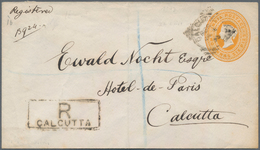 Registered
Ewald Nocht Esqre
Hotel-de-Paris
Calcutta
R
CALCUTTA